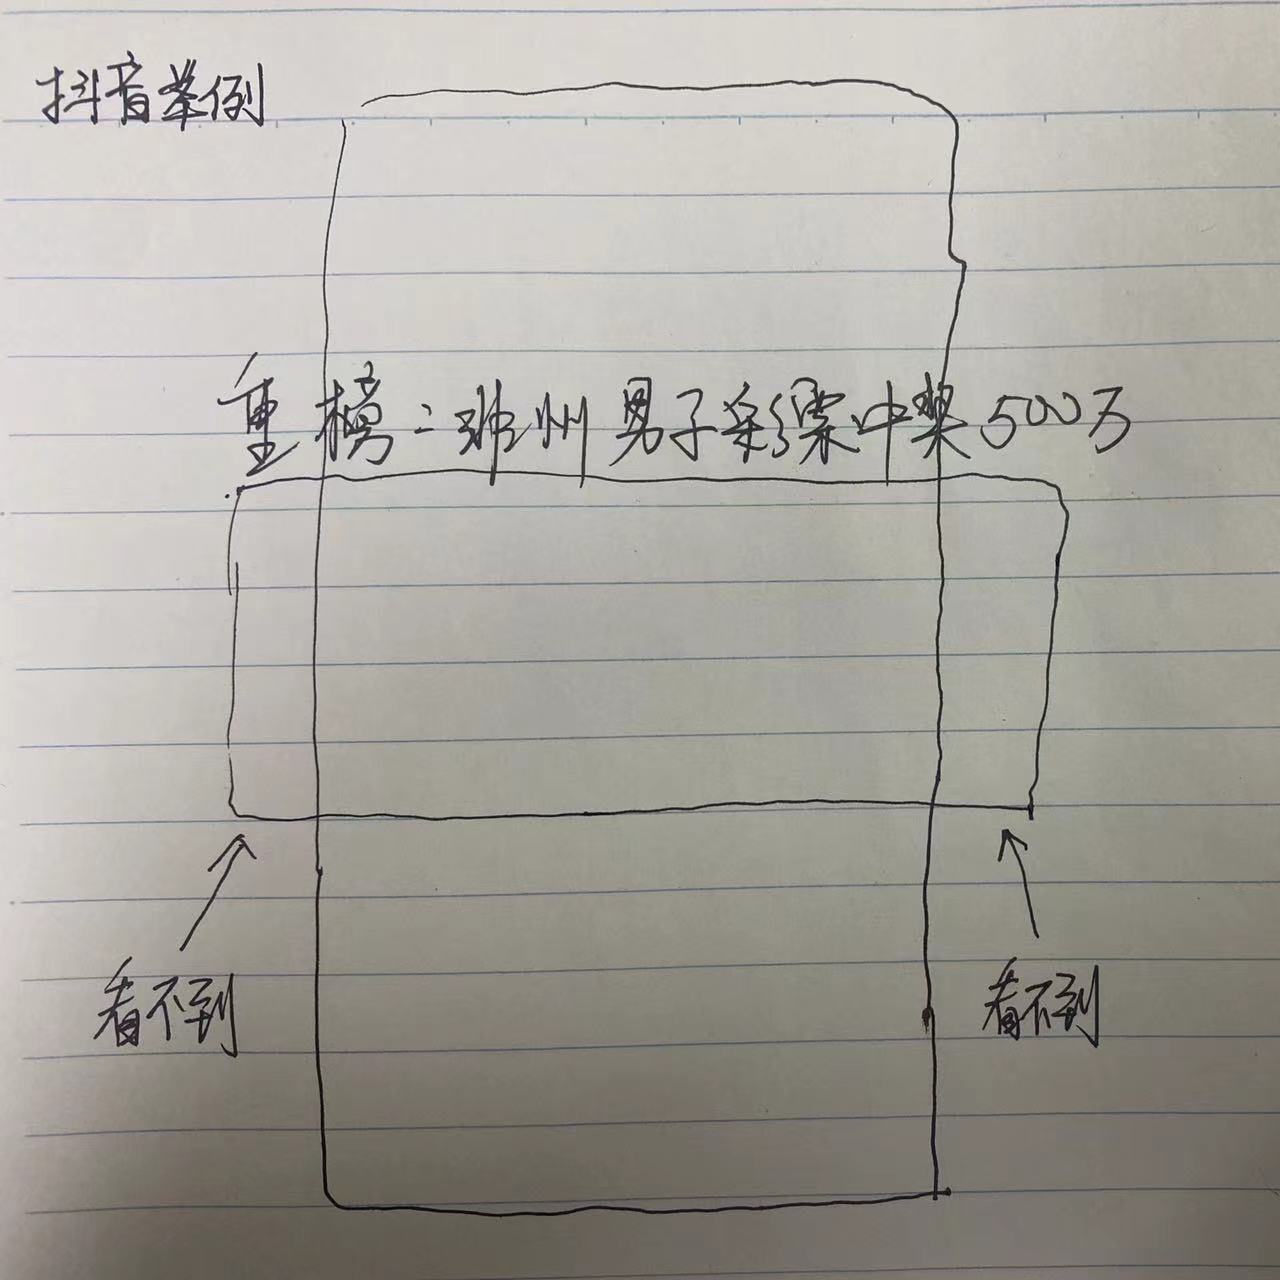 抖音举例
重榜：州男子彩票中奖500万
看不到
看不到